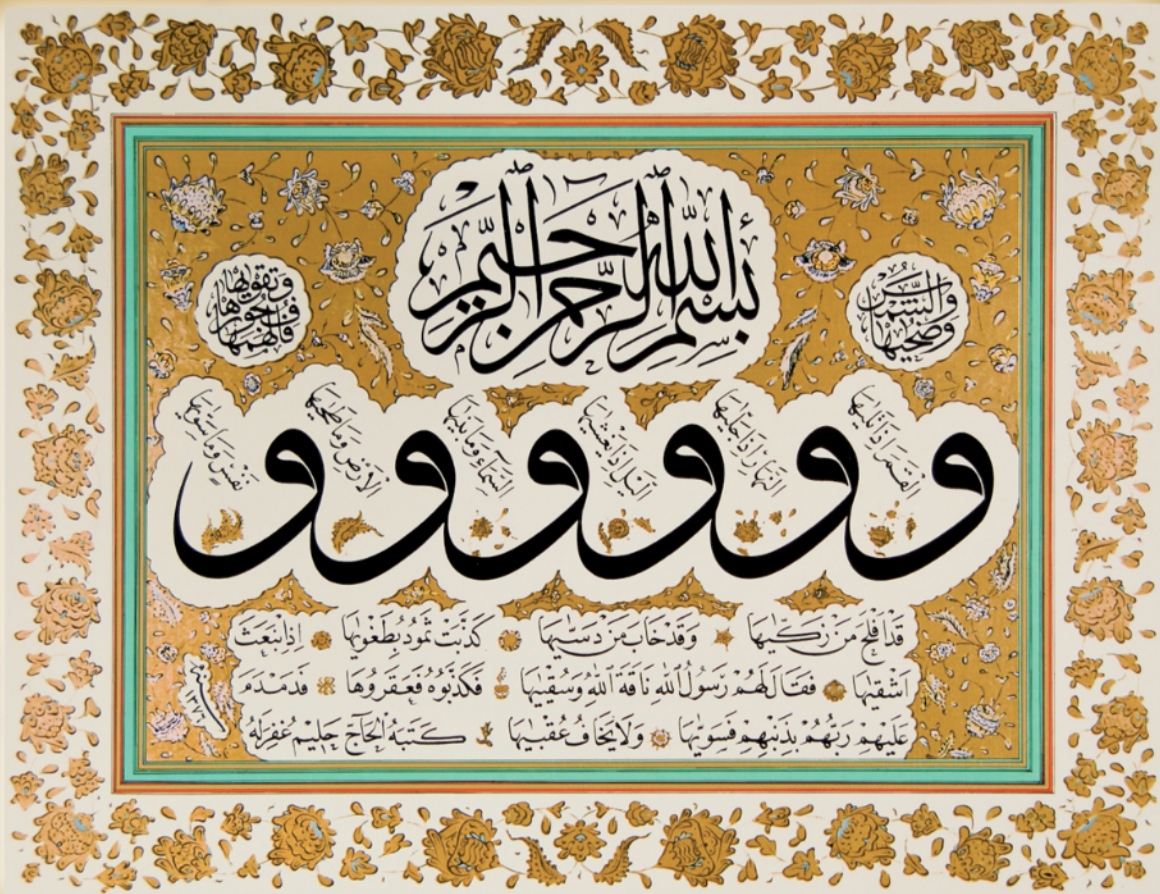 بسم الله الرحمن الرحيم
والشمس وضحيها
و القمر اذا تليها
و النهار اذا جليها
و الليل اذا يغشيها
و السماء وما بنيها
و الارض وما طحيها
و نفس وما سويها
فالهمها فجورها وتقويها
قد افلح من زكيها وقد خاب من دسيها كذبت ثمود بطغويها اذ انبعث
اشقيها فقال لهم رسول الله ناقة الله وسقييها فكذبوه فعقروها فدمدم
عليهم ربهم بذنبهم فسويها ولا يخاف عقبيها كتبه الحاج حليم غفر له